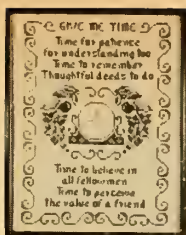 GIVE ME TIME
Time for patience
for understanding too
Time to remember
Thoughtful deeds to do
Time to believe in
all fellowmen
Time to perceive
the value of a friend